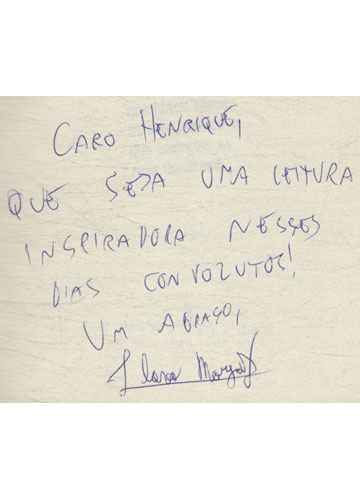 CARO HENRIQUE,
QUE SEJA UMA LEITURA
INSPIRADORA NESSES
DIAS CONVOLUTOS!
UM ABRAÇO,